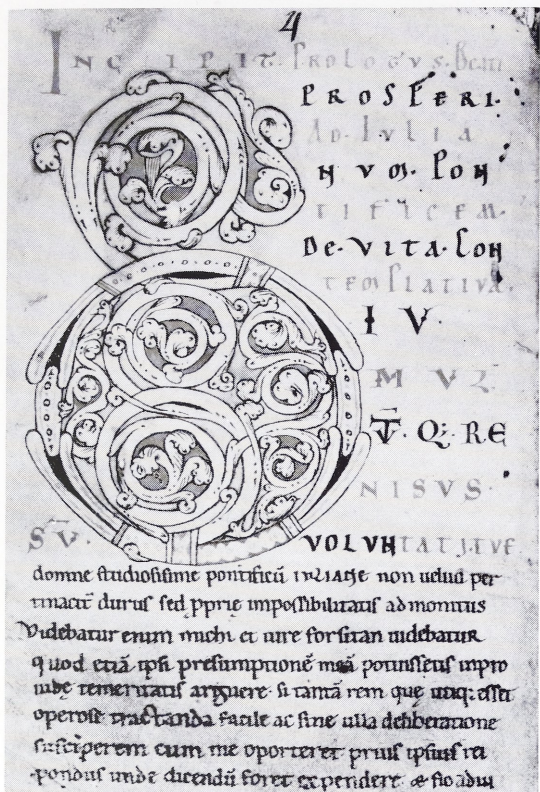 4
INCIPIT PROLOGVS. Beati
PROSPERI.
AD. IVLIA
NVM. PON
TIFICEM.
DE. VITA. CON
TEMPLATIVA.
D IV.
MVL
T̄. Q; RE
NISVS.
SV̄. VOLVNTATI. TVE
domne studiosissime pontificū IVLIANE non uelud per
tinacit̄ durus sed pprie impossibilitatis admonitus
Videbatur enim michi et uere forsitan uidebatur
quod etiā ipsi presumptionē meā potuissetis inpro
uidę temeritatis arguere. si tantā rem que utiq; esset
operose tractanda facile ac sine ulla deliberatione
susciperem cum me oporteret prius ipsius rei
pondus unde dicendū foret expendere & sic adiu